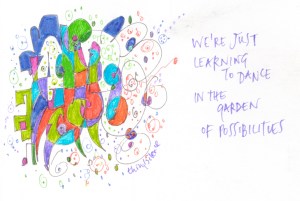 WE'RE JUST
LEARNING
TO DANCE
IN THE
GARDEN
OF POSSIBILITIES